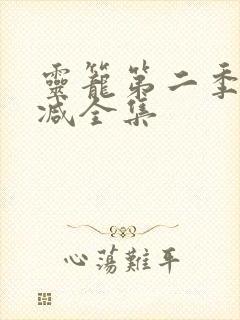 靈籠第二季
减全集
心蕩難平